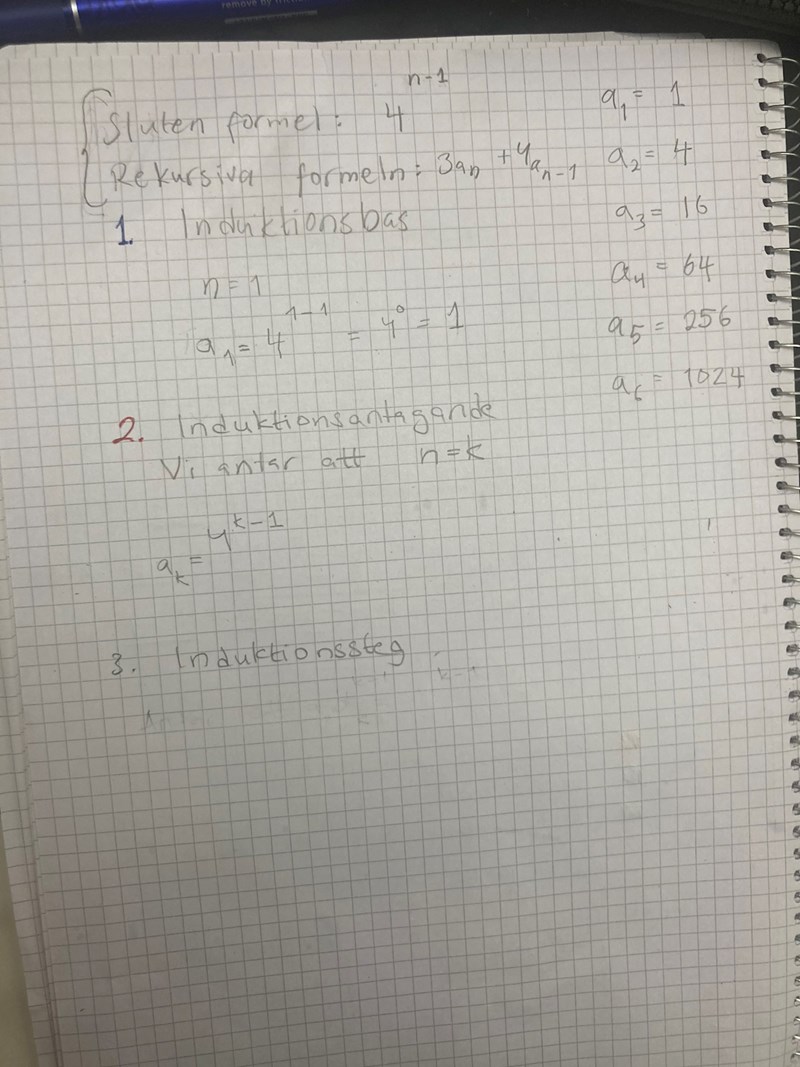 remove by
n-1
Sluten formel: 4
Rekursiva formeln: 3aₙ + 4aₙ₋₁
1. Induktionsbas
n=1
a₁ = 4¹⁻¹ = 4⁰ = 1
2. Induktionsantagande
Vi antar att n=k
aₖ = 4ᵏ⁻¹
3. Induktionssteg
a₁ = 1
a₂ = 4
a₃ = 16
a₄ = 64
a₅ = 256
a₆ = 1024